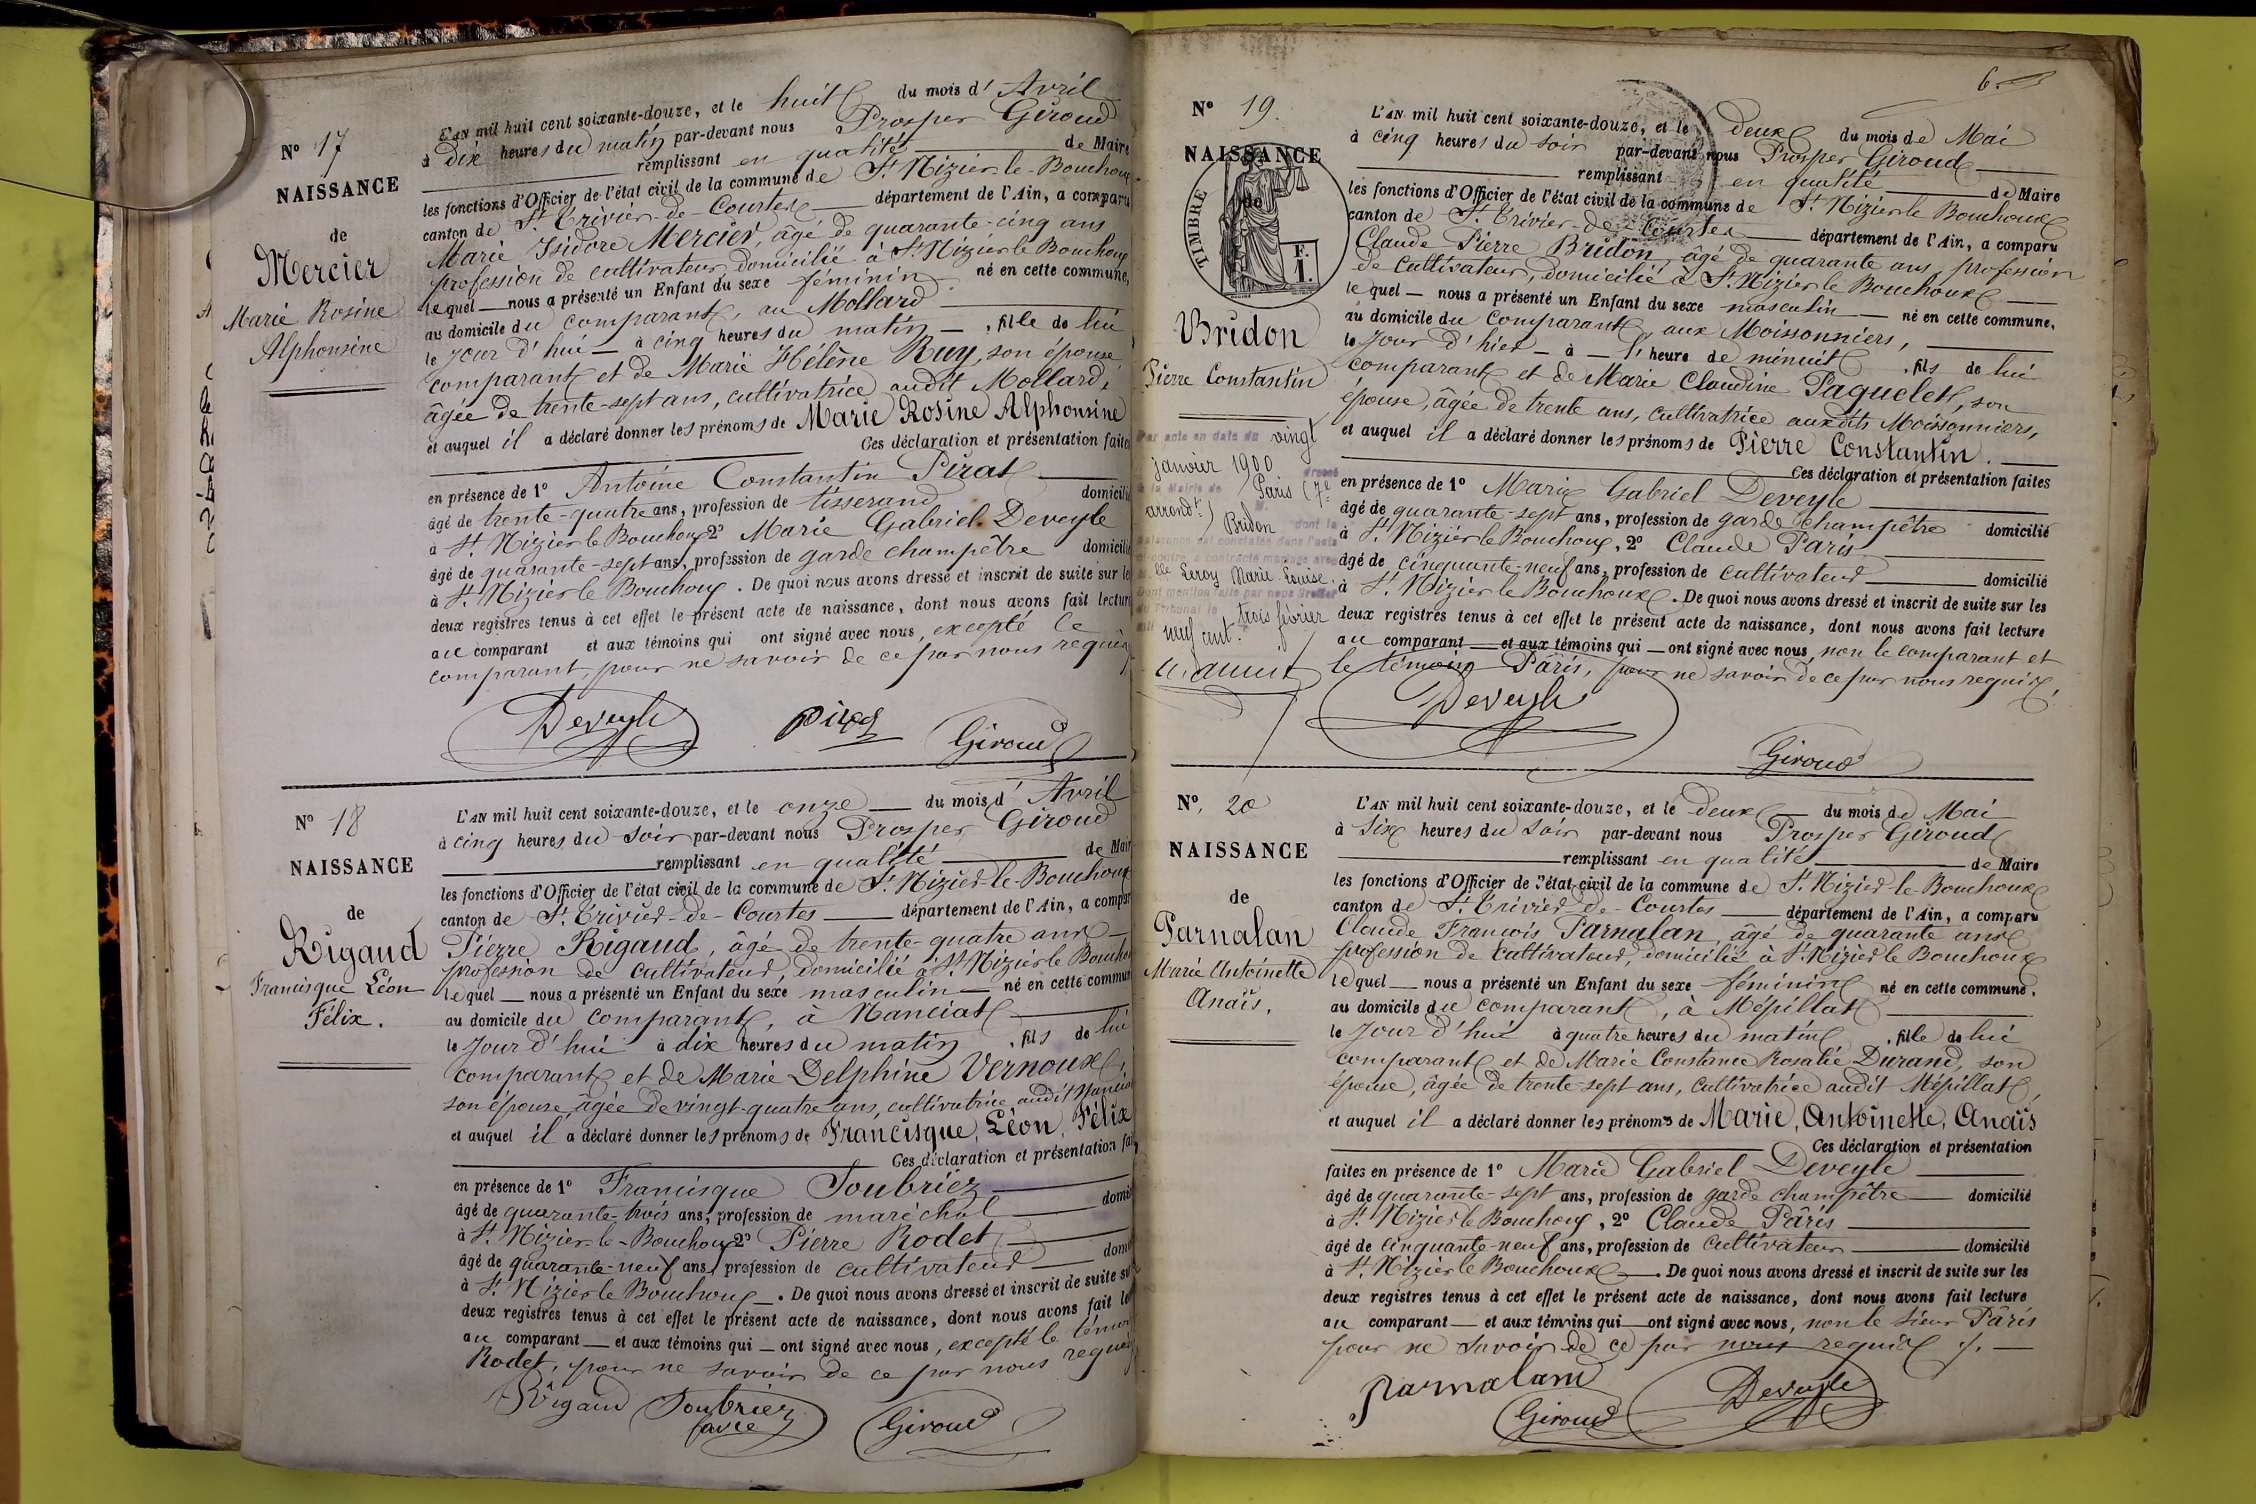 N° 17
NAISSANCE
de
Mercier
Marie Rosine
Alphonsine
L'AN mil huit cent soixante-douze, et le huit du mois d'Avril
à dix heures du matin par-devant nous Prosper Giroud
remplissant en qualité de Maire
les fonctions d'Officier de l'état civil de la commune de St Nizier-le-Bouchoux
canton de St Trivier-de-Courtes département de l'Ain, a comparu
Marie Isidore Mercier, âgé de quarante-cinq ans
profession de cultivateur, domicilié à St Nizier le Bouchoux
lequel nous a présenté un Enfant du sexe féminin né en cette commune,
au domicile du comparant, au Mollard
le jour d'hui à cinq heures du matin, fille de lui
comparant et de Marie Hélène Ruy, son épouse
âgée de trente-sept ans, cultivatrice audit Mollard,
et auquel il a déclaré donner les prénoms de Marie Rosine Alphonsine
Ces déclaration et présentation faites
en présence de 1° Antoine Constantin Pirat
âgé de trente-quatre ans, profession de tisserand domicilié
à St Nizier le Bouchoux 2° Marie Gabriel Deveyle
âgé de quarante-sept ans, profession de garde champêtre domicilié
à St Nizier le Bouchoux. De quoi nous avons dressé et inscrit de suite sur les
deux registres tenus à cet effet le présent acte de naissance, dont nous avons fait lecture
au comparant et aux témoins qui ont signé avec nous, excepté le
comparant, pour ne savoir de ce par nous requis
Deveyle Pirat Giroud
N° 18
NAISSANCE
de
Rigaud
Francisque Léon
Félix.
L'AN mil huit cent soixante-douze, et le onze du mois d'Avril
à cinq heures du soir par-devant nous Prosper Giroud
remplissant en qualité de Maire
les fonctions d'Officier de l'état civil de la commune de St Nizier-le-Bouchoux
canton de St Trivier-de-Courtes département de l'Ain, a comparu
Pierre Rigaud, âgé de trente-quatre ans
profession de cultivateur, domicilié à St Nizier le Bouchoux
lequel nous a présenté un Enfant du sexe masculin né en cette commune
au domicile du comparant, à Nanciat
le jour d'hui à dix heures du matin, fils de lui
comparant et de Marie Delphine Vernoux,
son épouse, âgée de vingt-quatre ans, cultivatrice audit Nanciat
et auquel il a déclaré donner les prénoms de Francisque, Léon, Félix
Ces déclaration et présentation faites
en présence de 1° Francisque Soubriez
âgé de quarante-trois ans, profession de maréchal domicilié
à St Nizier-le-Bouchoux 2° Pierre Rodet
âgé de quarante-neuf ans profession de cultivateur domicilié
à St Nizier le Bouchoux. De quoi nous avons dressé et inscrit de suite sur
deux registres tenus à cet effet le présent acte de naissance, dont nous avons fait lecture
au comparant et aux témoins qui ont signé avec nous, excepté le témoin
Rodet, pour ne savoir de ce par nous requis
Rigaud Soubriez Giroud
6
N° 19.
NAISSANCE
de
TIMBRE
F. 1.
Bridon
Pierre Constantin
Par acte en date du vingt
janvier 1900 dressé
à la Mairie de Paris (7e
arrondt) Bridon dont la
naissance est constatée dans l'acte
ci-contre, a contracté mariage avec
elle Leroy Marie Louise.
Dont mention faite par nous Greffier
du Tribunal le trois février
mil neuf cent.
L'AN mil huit cent soixante-douze, et le deux du mois de Mai
à cinq heures du soir par-devant nous Prosper Giroud
remplissant en qualité de Maire
les fonctions d'Officier de l'état civil de la commune de St Nizier le Bouchoux
canton de St Trivier-de-Courtes département de l'Ain, a comparu
Claude Pierre Bridon, âgé de quarante ans, profession
de cultivateur, domicilié à St Nizier le Bouchoux
lequel nous a présenté un Enfant du sexe masculin né en cette commune,
au domicile du comparant, aux Moissonniers,
le jour d'hier à l'heure de minuit, fils de lui
comparant et de Marie Claudine Paquelet, son
épouse, âgée de trente ans, cultivatrice auxdits Moissonniers,
et auquel il a déclaré donner les prénoms de Pierre Constantin.
Ces déclaration et présentation faites
en présence de 1° Marie Gabriel Deveyle
âgé de quarante-sept ans, profession de garde champêtre domicilié
à St Nizier le Bouchoux, 2° Claude Pâris
âgé de cinquante-neuf ans, profession de cultivateur domicilié
à St Nizier le Bouchoux. De quoi nous avons dressé et inscrit de suite sur les
deux registres tenus à cet effet le présent acte de naissance, dont nous avons fait lecture
au comparant et aux témoins qui ont signé avec nous, non le comparant et
le témoin Pâris, pour ne savoir de ce par nous requis.
Deveyle
Giroud
N° 20
NAISSANCE
de
Parnalan
Marie Antoinette
Anaïs.
L'AN mil huit cent soixante-douze, et le deux du mois de Mai
à six heures du soir par-devant nous Prosper Giroud
remplissant en qualité de Maire
les fonctions d'Officier de l'état civil de la commune de St Nizier-le-Bouchoux
canton de St Trivier-de-Courtes département de l'Ain, a comparu
Claude François Parnalan, âgé de quarante ans
profession de cultivateur, domicilié à St Nizier le Bouchoux
lequel nous a présenté un Enfant du sexe féminin né en cette commune,
au domicile du comparant, à Mépillat
le jour d'hui à quatre heures du matin, fille de lui
comparant et de Marie Constance Rosalie Durand, son
épouse, âgée de trente-sept ans, cultivatrice audit Mépillat,
et auquel il a déclaré donner les prénoms de Marie, Antoinette, Anaïs
Ces déclaration et présentation
faites en présence de 1° Marie Gabriel Deveyle
âgé de quarante-sept ans, profession de garde champêtre domicilié
à St Nizier le Bouchoux, 2° Claude Pâris
âgé de cinquante-neuf ans, profession de cultivateur domicilié
à St Nizier le Bouchoux. De quoi nous avons dressé et inscrit de suite sur les
deux registres tenus à cet effet le présent acte de naissance, dont nous avons fait lecture
au comparant et aux témoins qui ont signé avec nous, non le sieur Pâris
pour ne savoir de ce par nous requis.
Parnalan
Giroud Deveyle